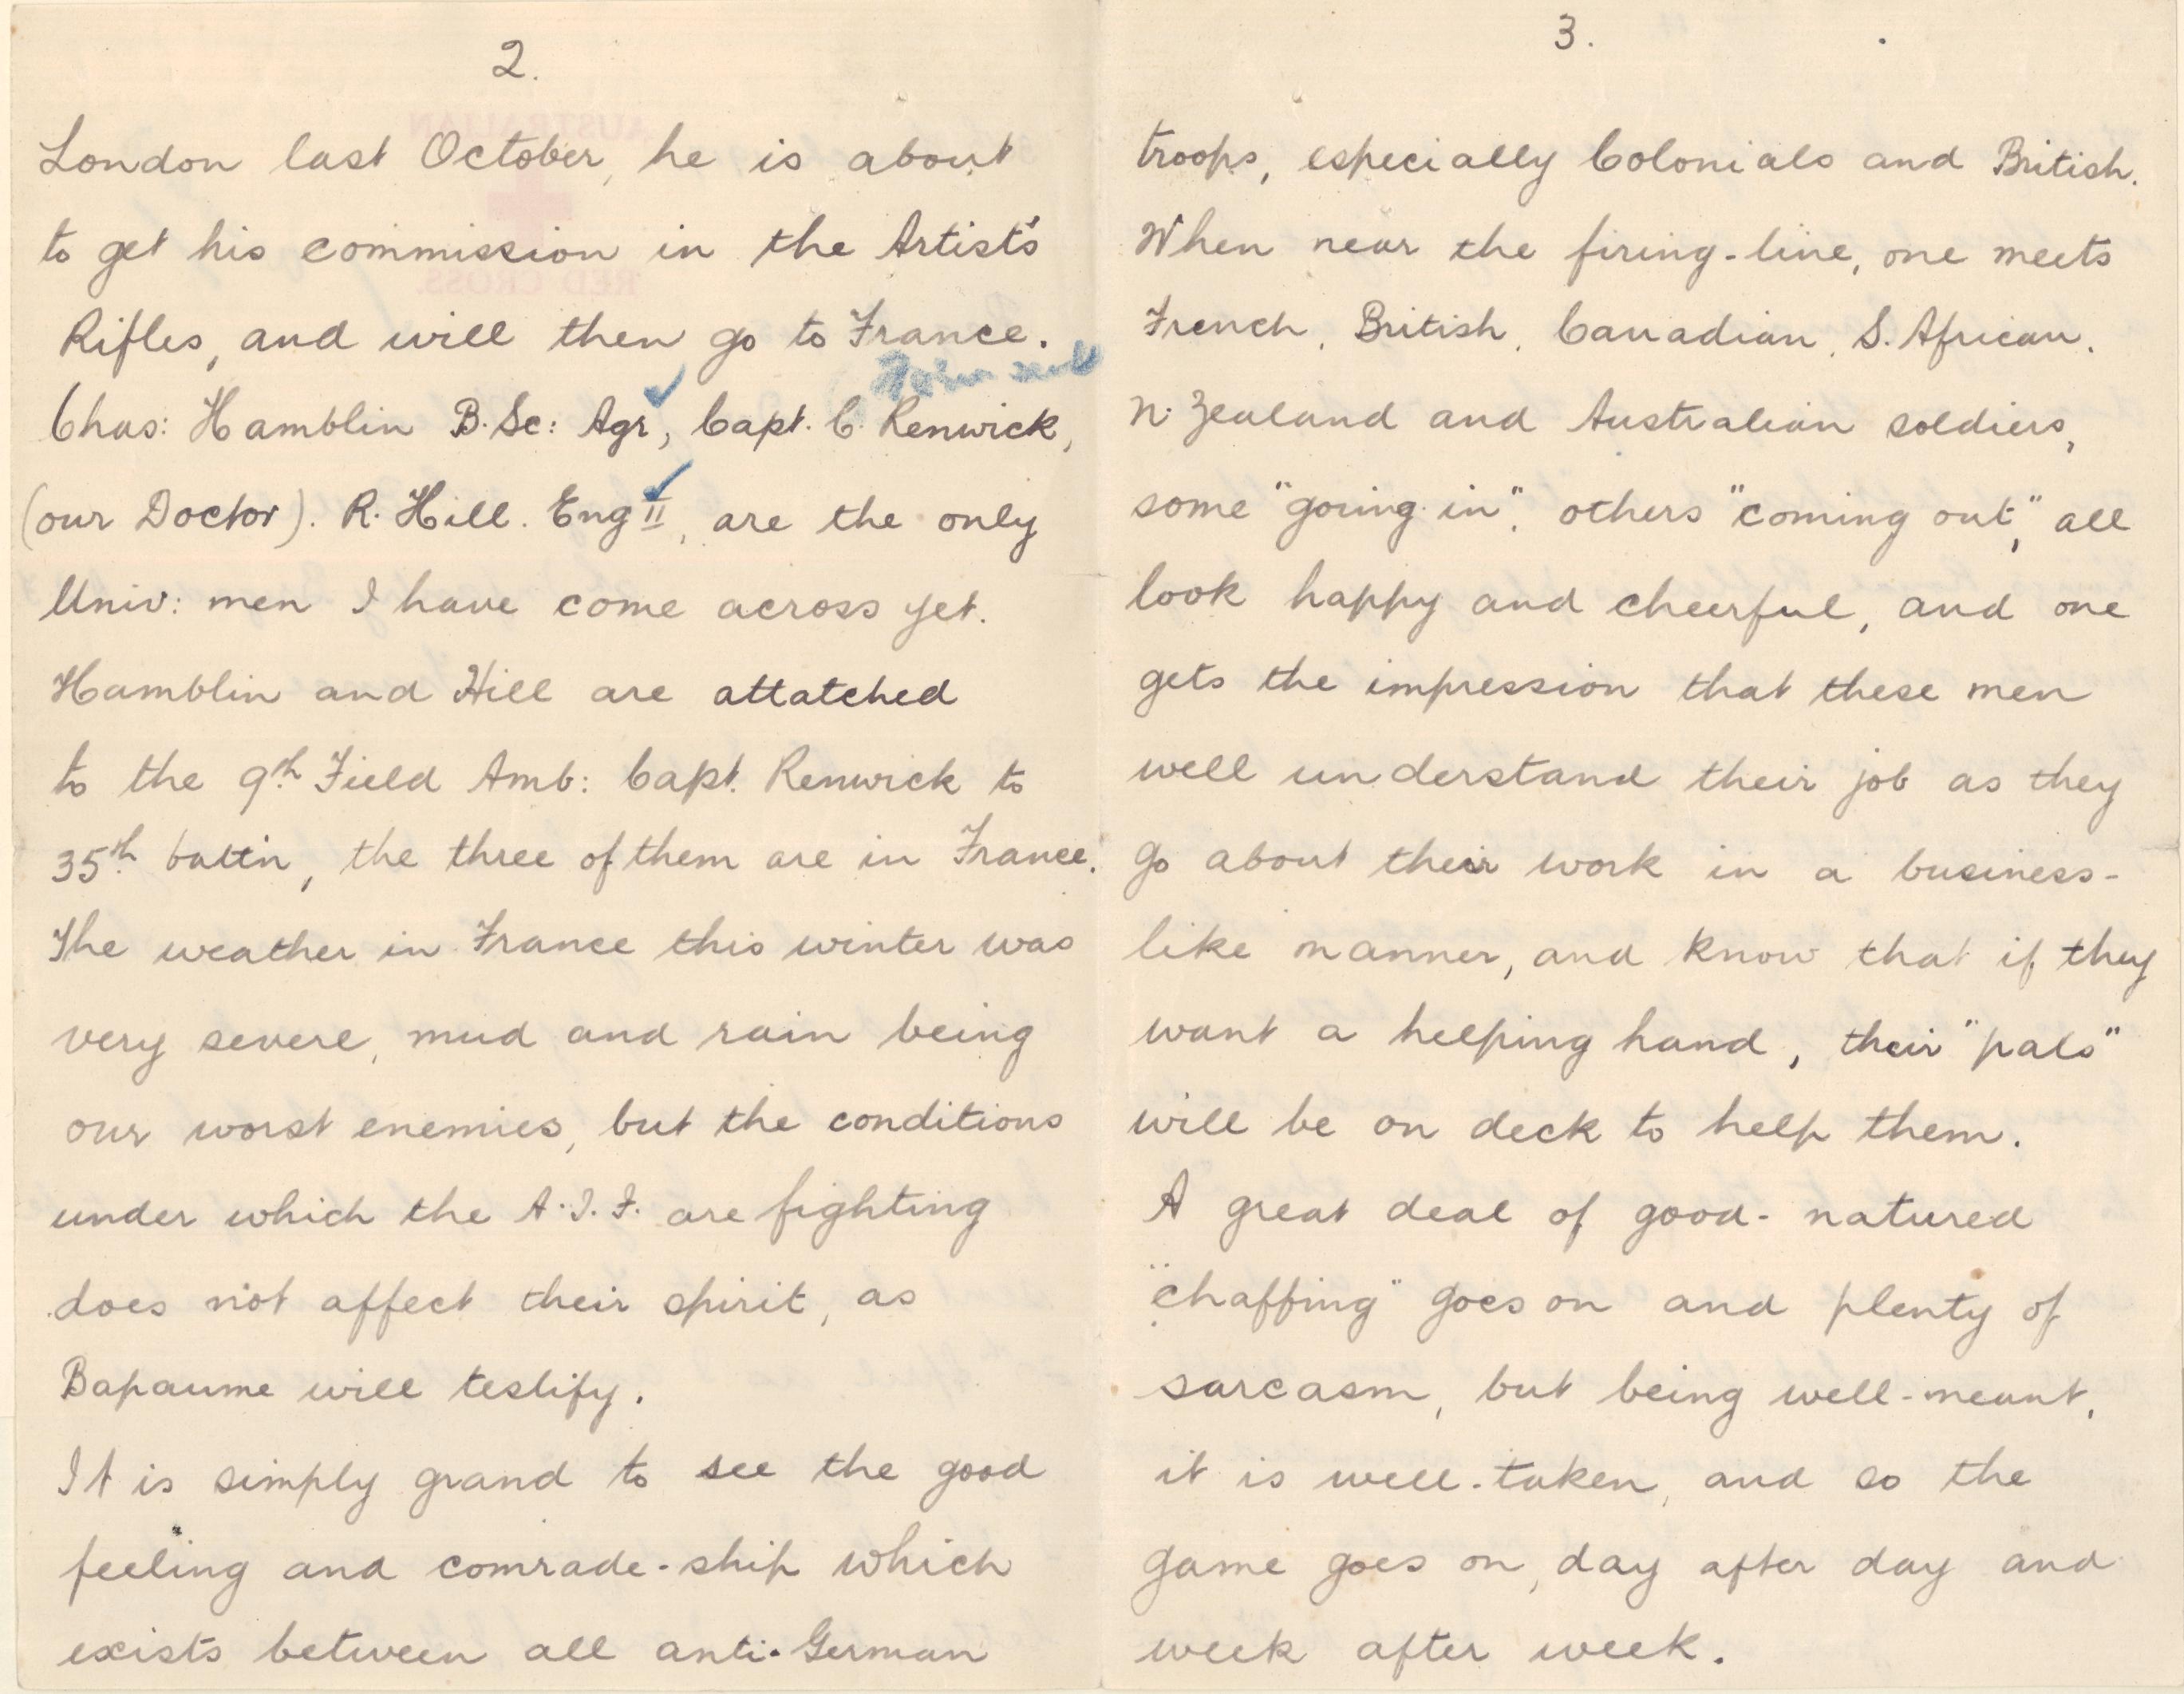 2.
London last October, he is about
to get his commission in the Artist's
Rifles, and will then go to France.
Chas: Hamblin B.Sc: Agr, Capt. C. Renwick,
(our Doctor). R. Hill. Eng II, are the only
Univ: men I have come across yet.
Hamblin and Hill are attatched
to the 9th Field Amb: Capt. Renwick to
35th battn, the three of them are in France.
The weather in France this winter was
very severe, mud and rain being
our worst enemies, but the conditions
under which the A.I.F. are fighting
does not affect their spirit, as
Bapaume will testify.
It is simply grand to see the good
feeling and comrade-ship which
exists between all anti-German
3.
troops, especially Colonials and British.
When near the firing-line, one meets
French, British, Canadian, S. African,
N. Zealand and Australian soldiers,
some "going in", others "coming out", all
look happy and cheerful, and one
gets the impression that these men
well understand their job as they
go about their work in a business-
like manner, and know that if they
want a helping hand, their "pals"
will be on deck to help them.
A great deal of good-natured
"chaffing" goes on and plenty of
sarcasm, but being well-meant,
it is well-taken, and so the
game goes on, day after day and
week after week.
AUSTRALIAN
RED CROSS.